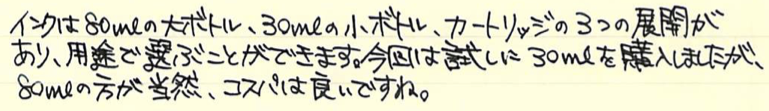 インクは80mlの大ボトル、30mlの小ボトル、カートリッジの3つの展開が
あり、用途で選ぶことができます。今回は試しに30mlを購入しましたが、
80mlの方が当然、コスパは良いですね。